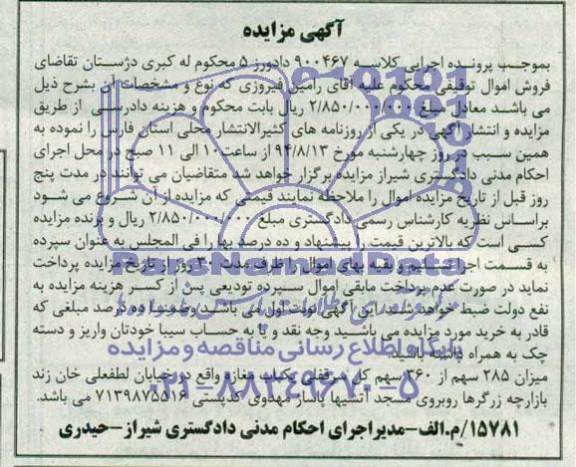 آگهی مزایده
بموجب پرونده اجرایی کلاسه ۹۰۰۴۶۷ دادورز ۵ محکوم له کبری دژستان تقاضای
فروش اموال توقیفی محکوم علیه آقای رامین فیروزی که نوع و مشخصات آن بشرح ذیل
می باشد معادل مبلغ ۲/۸۵۰/۰۰۰/۰۰۰ ریال بابت محکوم و هزینه دادرسی از طریق
مزایده و انتشار آگهی در یکی از روزنامه های کثیرالانتشار محلی استان فارس را نموده به
همین سبب در روز چهارشنبه مورخ ۹۴/۸/۱۳ از ساعت۱۰ الی ۱۱ صبح در محل اجرای
احکام مدنی دادگستری شیراز مزایده برگزار خواهد شد متقاضیان می توانند در مدت پنج
روز قبل از تاریخ مزایده اموال را ملاحظه نمایند قیمتی که مزایده از آن شروع می شود
براساس نظریه کارشناس رسمی دادگستری مبلغ ۲/۸۵۰/۰۰۰/۰۰۰ ریال و برنده مزایده
کسی است که بالاترین قیمت را پیشنهاد و ده درصد بها را فی المجلس به عنوان سپرده
به قسمت اجرا تسلیم و بقیه بهای اموال را ظرف مدت ۳۰ روز از تاریخ مزایده پرداخت
نماید در صورت عدم پرداخت مابقی اموال سپرده تودیعی پس از کسر هزینه مزایده به
نفع دولت ضبط خواهد شد. این آگهی نوبت اول می باشد وضمنا ده درصد مبلغی که
قادر به خرید مورد مزایده می باشید وجه نقد و یا به حساب سیبا خودتان واریز و دسته
چک به همراه داشته باشید.
میزان ۲۸۵ سهم از ۳۶۰ سهم کل سرقفلی یکباب مغازه واقع در خیابان لطفعلی خان زند
بازارچه زرگرها روبروی مسجد آتشیها پاساژ مهدوی کدپستی ۷۱۳۹۸۷۵۵۱۶ می باشد.
۱۵۷۸۱/م.الف-مدیراجرای احکام مدنی دادگستری شیراز-حیدری
ParsNamadData
پایگاه اطلاع رسانی مناقصه و مزایده
۰۲۱-۸۸۳۴۹۶۷۰-۵